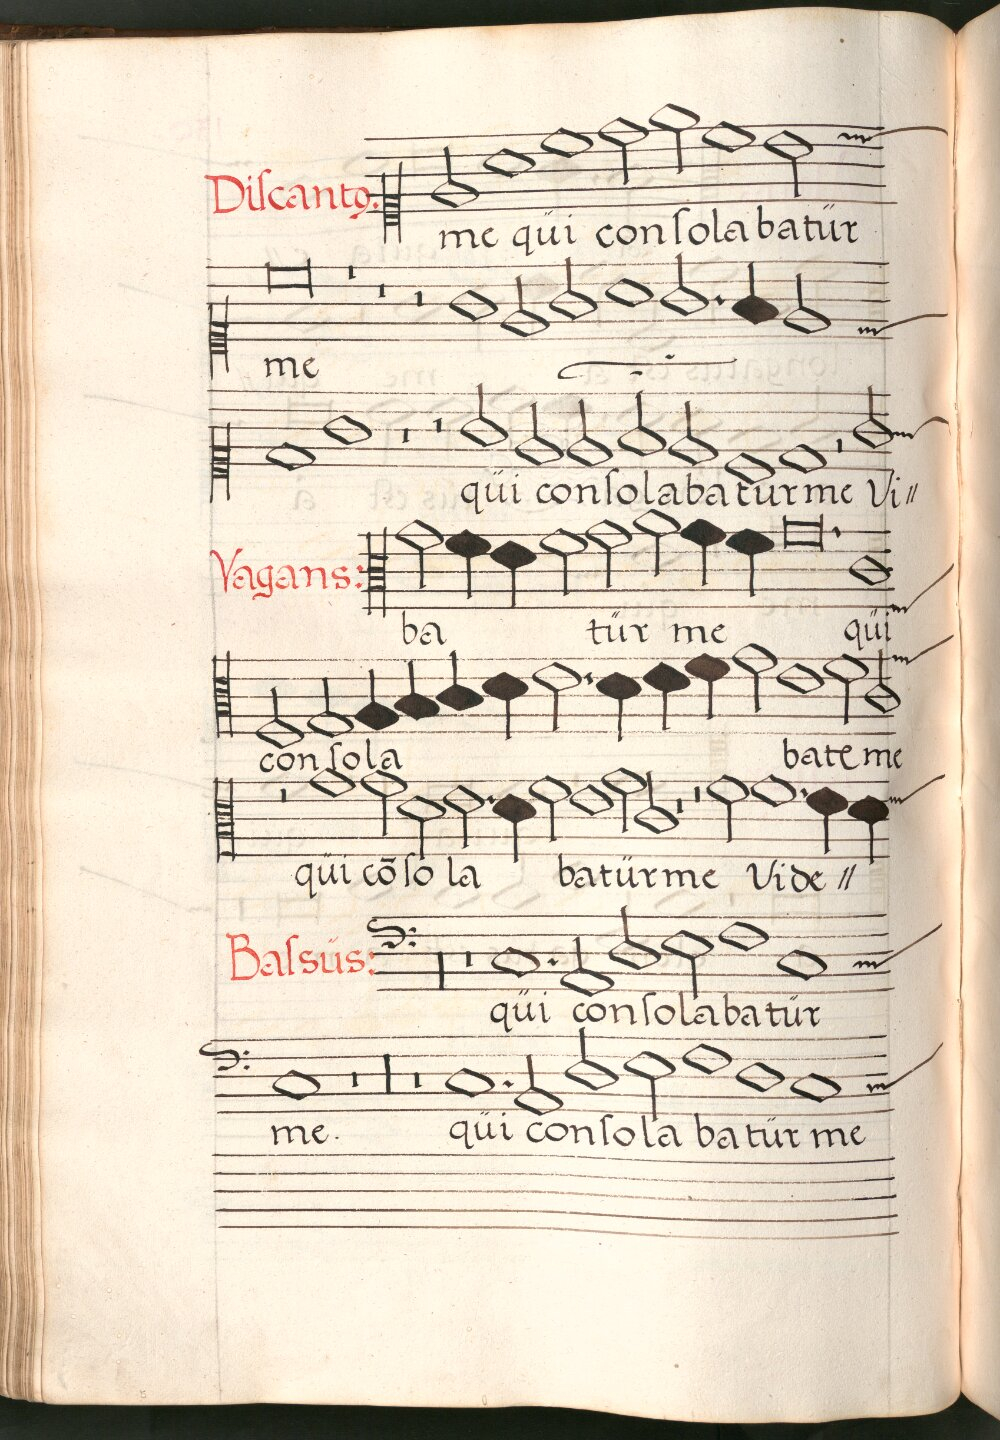 Diſcantꝯ:
me qüi conſolabatür
me
qüi conſolabatürme Vi〃
Vagans:
ba tür me qüi
conſola bate me
qüi cõſo la batürme Vide 〃
Baſsüs:
qüi conſolabatür
me. qüi conſola batür me